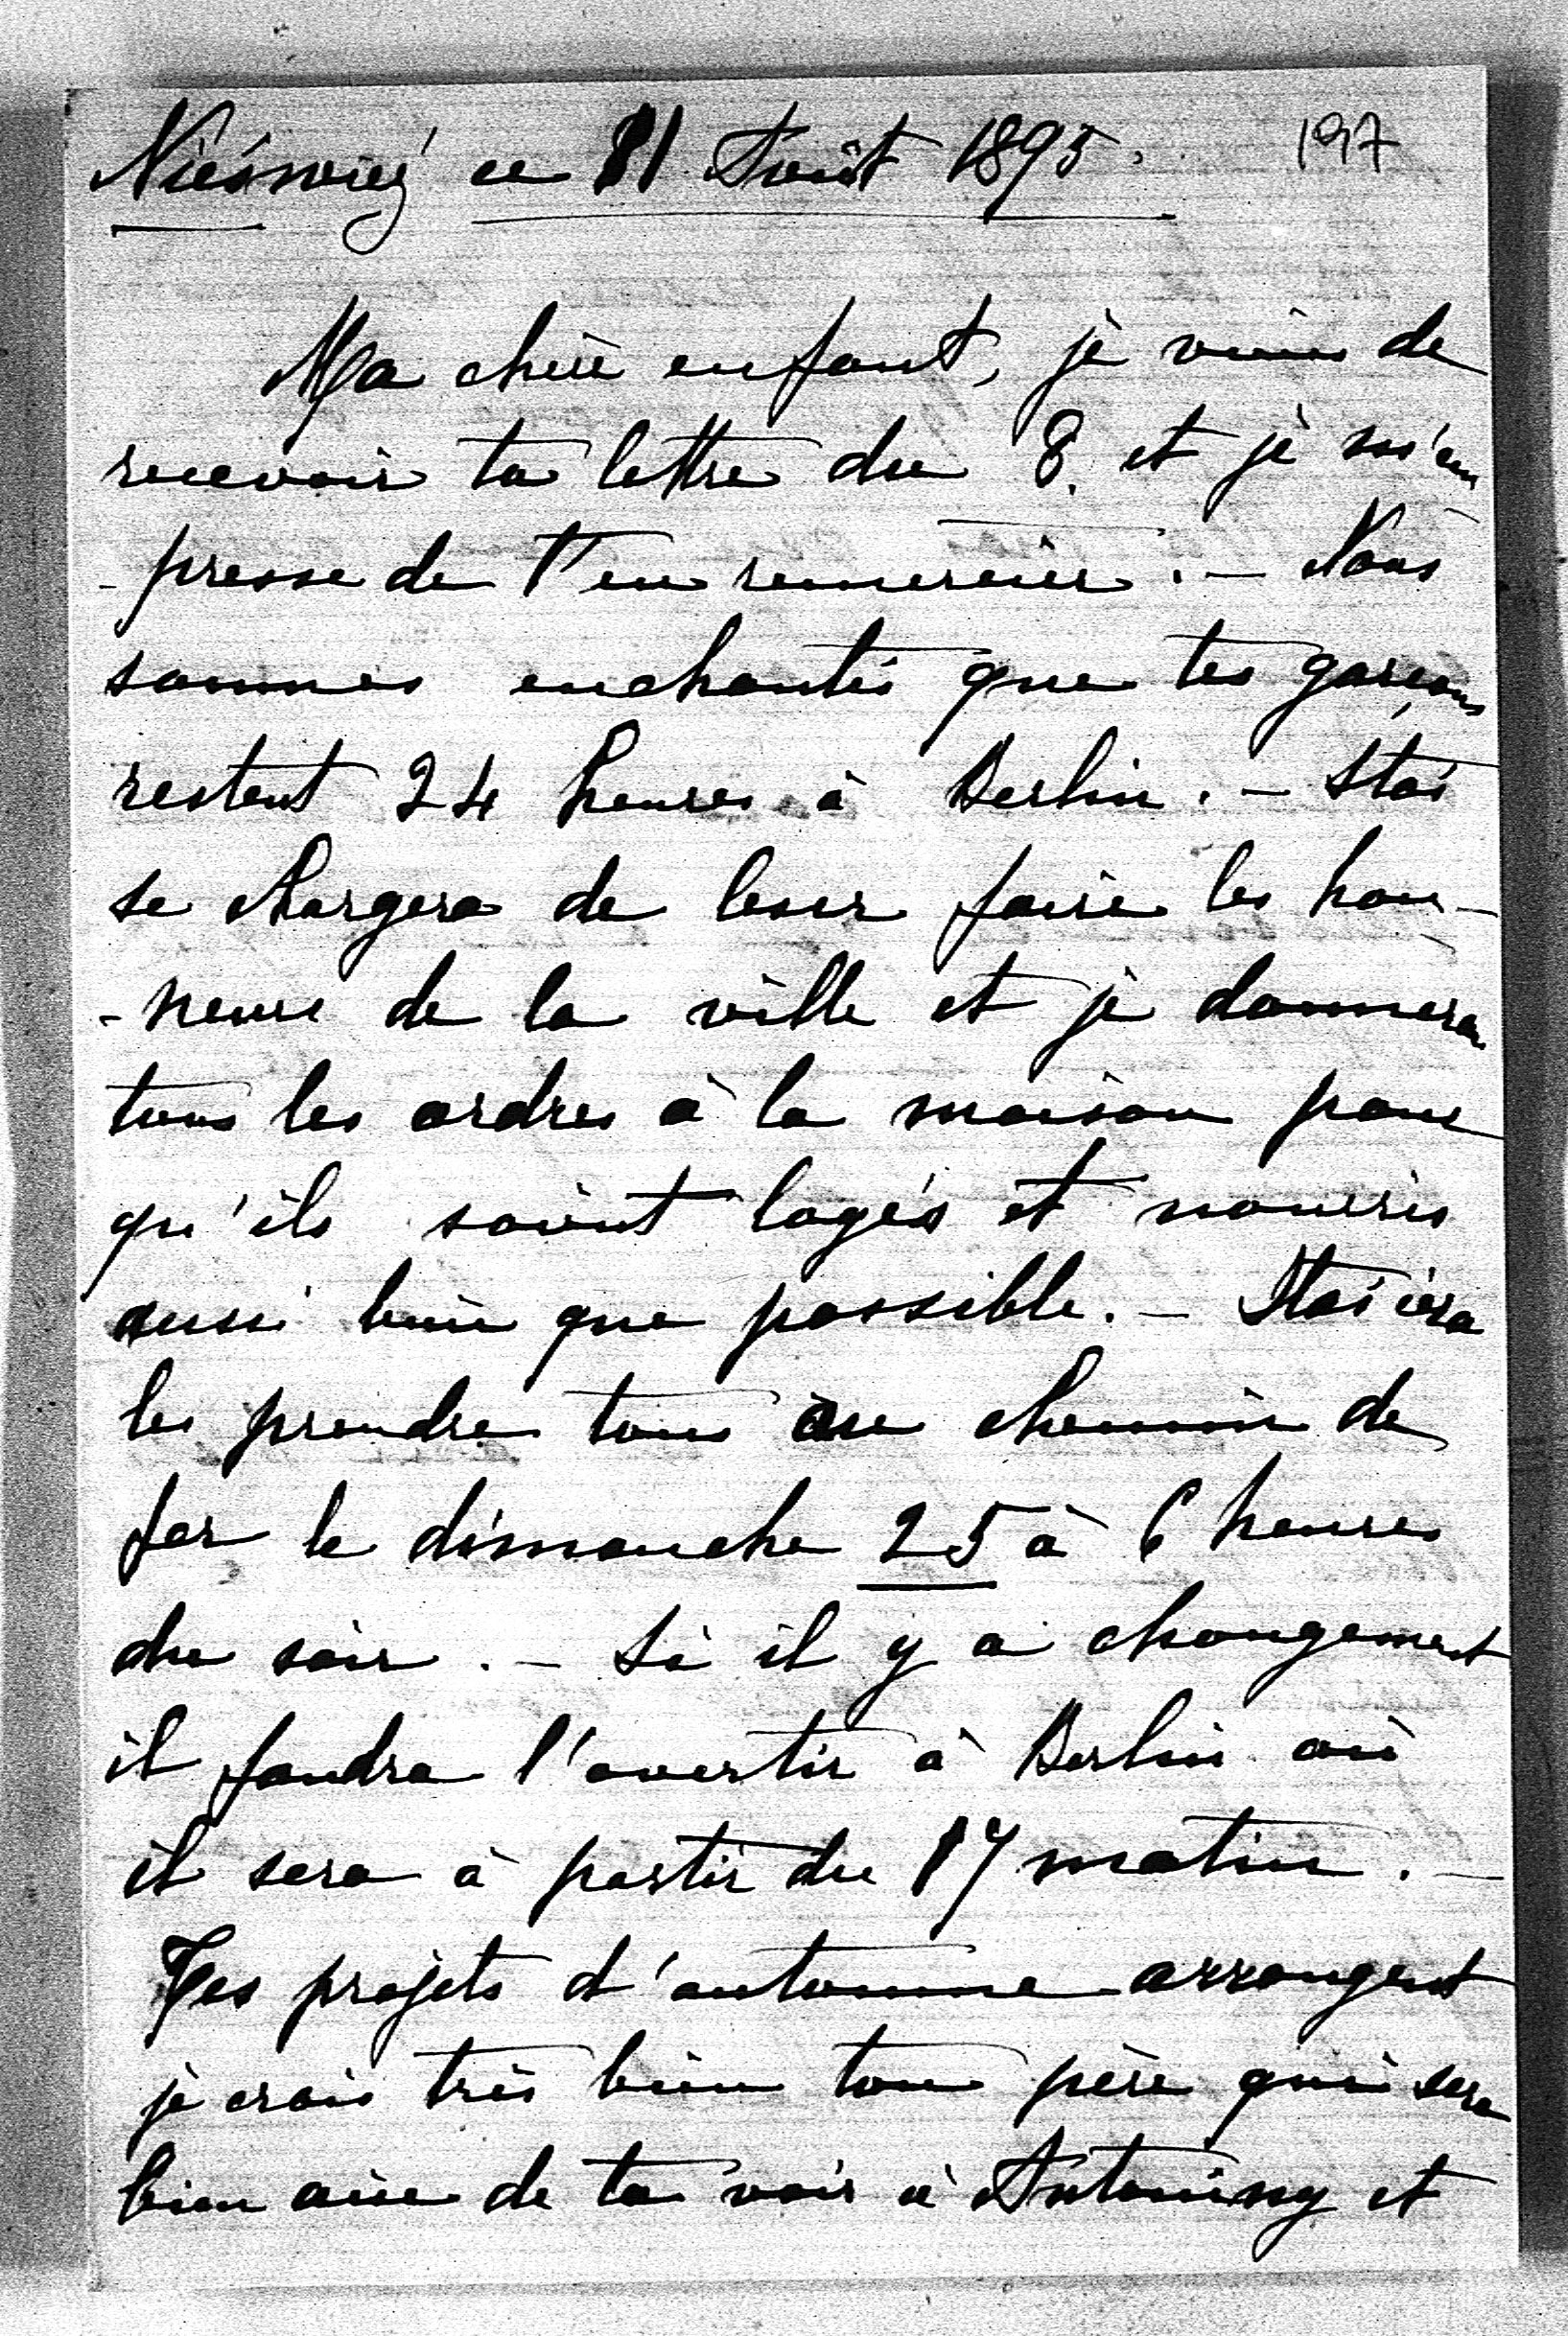 Nieśwież ce 11 Août 1895. 197
Ma chère enfant, je viens de
recevoir ta lettre du 8. et je m'em
-presse de t'en remercier. — Nous
sommes enchantés que tes garçons
restent 24 heures à Berlin. — Staś
se chargera de leur faire les hon-
-neurs de la ville et je donnerai
tous les ordres à la maison pour
qu'ils soient logés et nourris
aussi bien que possible. — Staś ira
les prendre tous au chemin de
fer le dimanche 25 à 6 heures
du soir. — Si il y a changement
il faudra l'avertir à Berlin où
il sera à partir du 17 matin. —
Tes projets d'automne arrangent
je crois très bien ton père qui sera
bien aise de te voir à Antoniny et